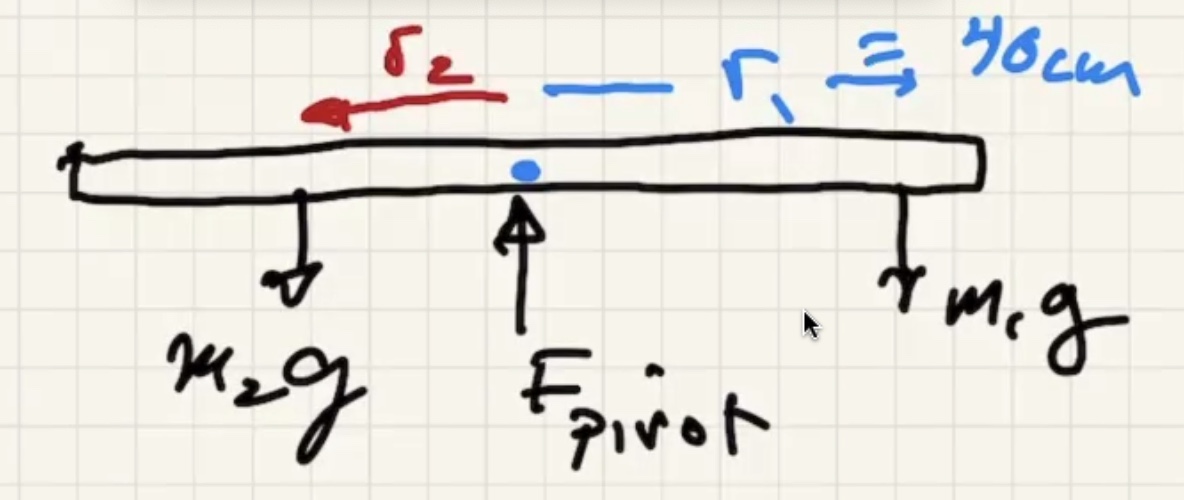 r₂ — r₁ = 40cm
m₂g
F pivot
m₁g